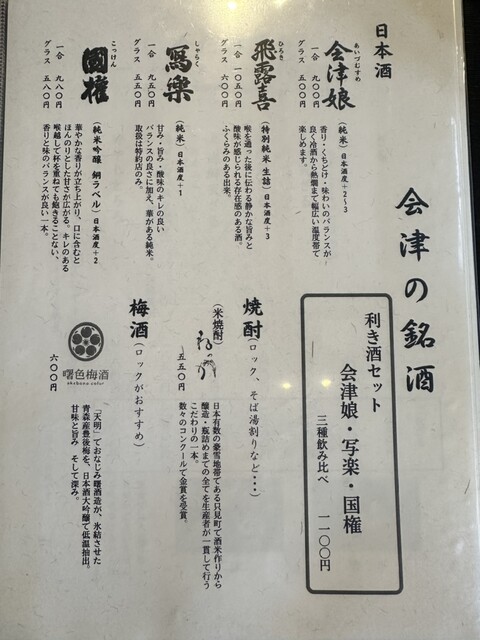 会津の銘酒
日本酒
あいづむすめ
会津娘
一合 九〇〇円
グラス 五〇〇円
(純米)日本酒度+2~3
香り・くちどけ・味わいのバランスが
良く冷酒から熱燗まで幅広い温度帯で
楽しめます。
ひろき
飛露喜
一合 一〇五〇円
グラス 六〇〇円
(特別純米 生詰)日本酒度+3
喉を通った後に伝わる静かな旨みと
酸味が感じられる存在感のある酒。
ふくらみのある出来。
しゃらく
寫樂
一合 九五〇円
グラス 五五〇円
(純米)日本酒度+1
甘み・旨み・酸味のキレの良い
バランスの良さに加え、華がある純米。
取扱は特約店のみ。
こっけん
國権
一合 九八〇円
グラス 五八〇円
(純米吟醸 銅ラベル)日本酒度+2
華やかな香りが立ち上がり、口に含むと
ほんのりとした甘さが広がる。キレのある
喉越しで杯を重ねても飽きることない、
香りと味のバランスが良い一本。
利き酒セット
会津娘・写楽・国権
三種飲み比べ 一一〇〇円
焼酎(ロック、そば湯割りなど・・・)
(米焼酎)
ねっか
五五〇円
日本有数の豪雪地帯である只見町で酒米作りから
醸造・瓶詰めまでの全てを生産者が一貫して行う
こだわりの一本。
数々のコンクールで金賞を受賞。
梅酒(ロックがおすすめ)
曙色梅酒
akebono color
六〇〇円
「天明」でおなじみ曙酒造が、氷結させた
青森産豊後梅を、日本酒大吟醸で低温抽出。
甘味と旨み、そして深み。